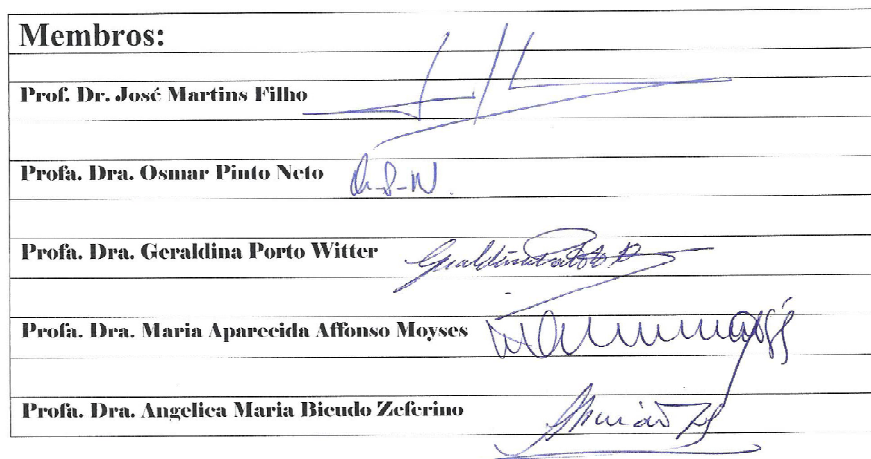 Membros:
Prof. Dr. José Martins Filho
Profa. Dra. Osmar Pinto Neto
Profa. Dra. Geraldina Porto Witter
Profa. Dra. Maria Aparecida Affonso Moyses
Profa. Dra. Angelica Maria Bicudo Zeferino